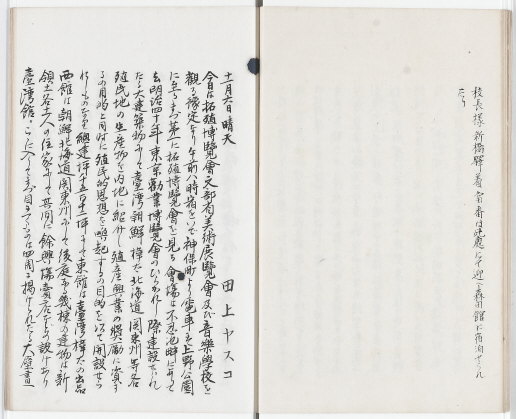 校長様新橋驛着
たり
十一月六日晴天
田上ヤスコ
今日は拓殖博覧會文部省美術展覧會及び音樂學校を
觀る豫定なり午前八時宿をいで神保町より電車を上野公園
に至るまづ第一に拓殖博覧會を見る會場は不忍池畔にありて
去明治四十年東京勧業博覧會のひらかれし際建設せられ
たる大建築物にて臺灣朝鮮樺太北海道関東州等各
殖民地の生産物を内地に紹介し殖産興業の奨勵に資す
るの目的と同時に殖民的思想を喚起するの目的を以て開設せら
れしものなり總建坪千五百二十坪にて東館は臺灣樺太の出品
西館は朝鮮北海道関東州にて後庭なる幾棟の建物は新
領土各土人の住家にて其間に餘興場賣店などの設けあり
臺灣館、ここに入りてまづ目につくのは四周に掲げられたる大壁畫